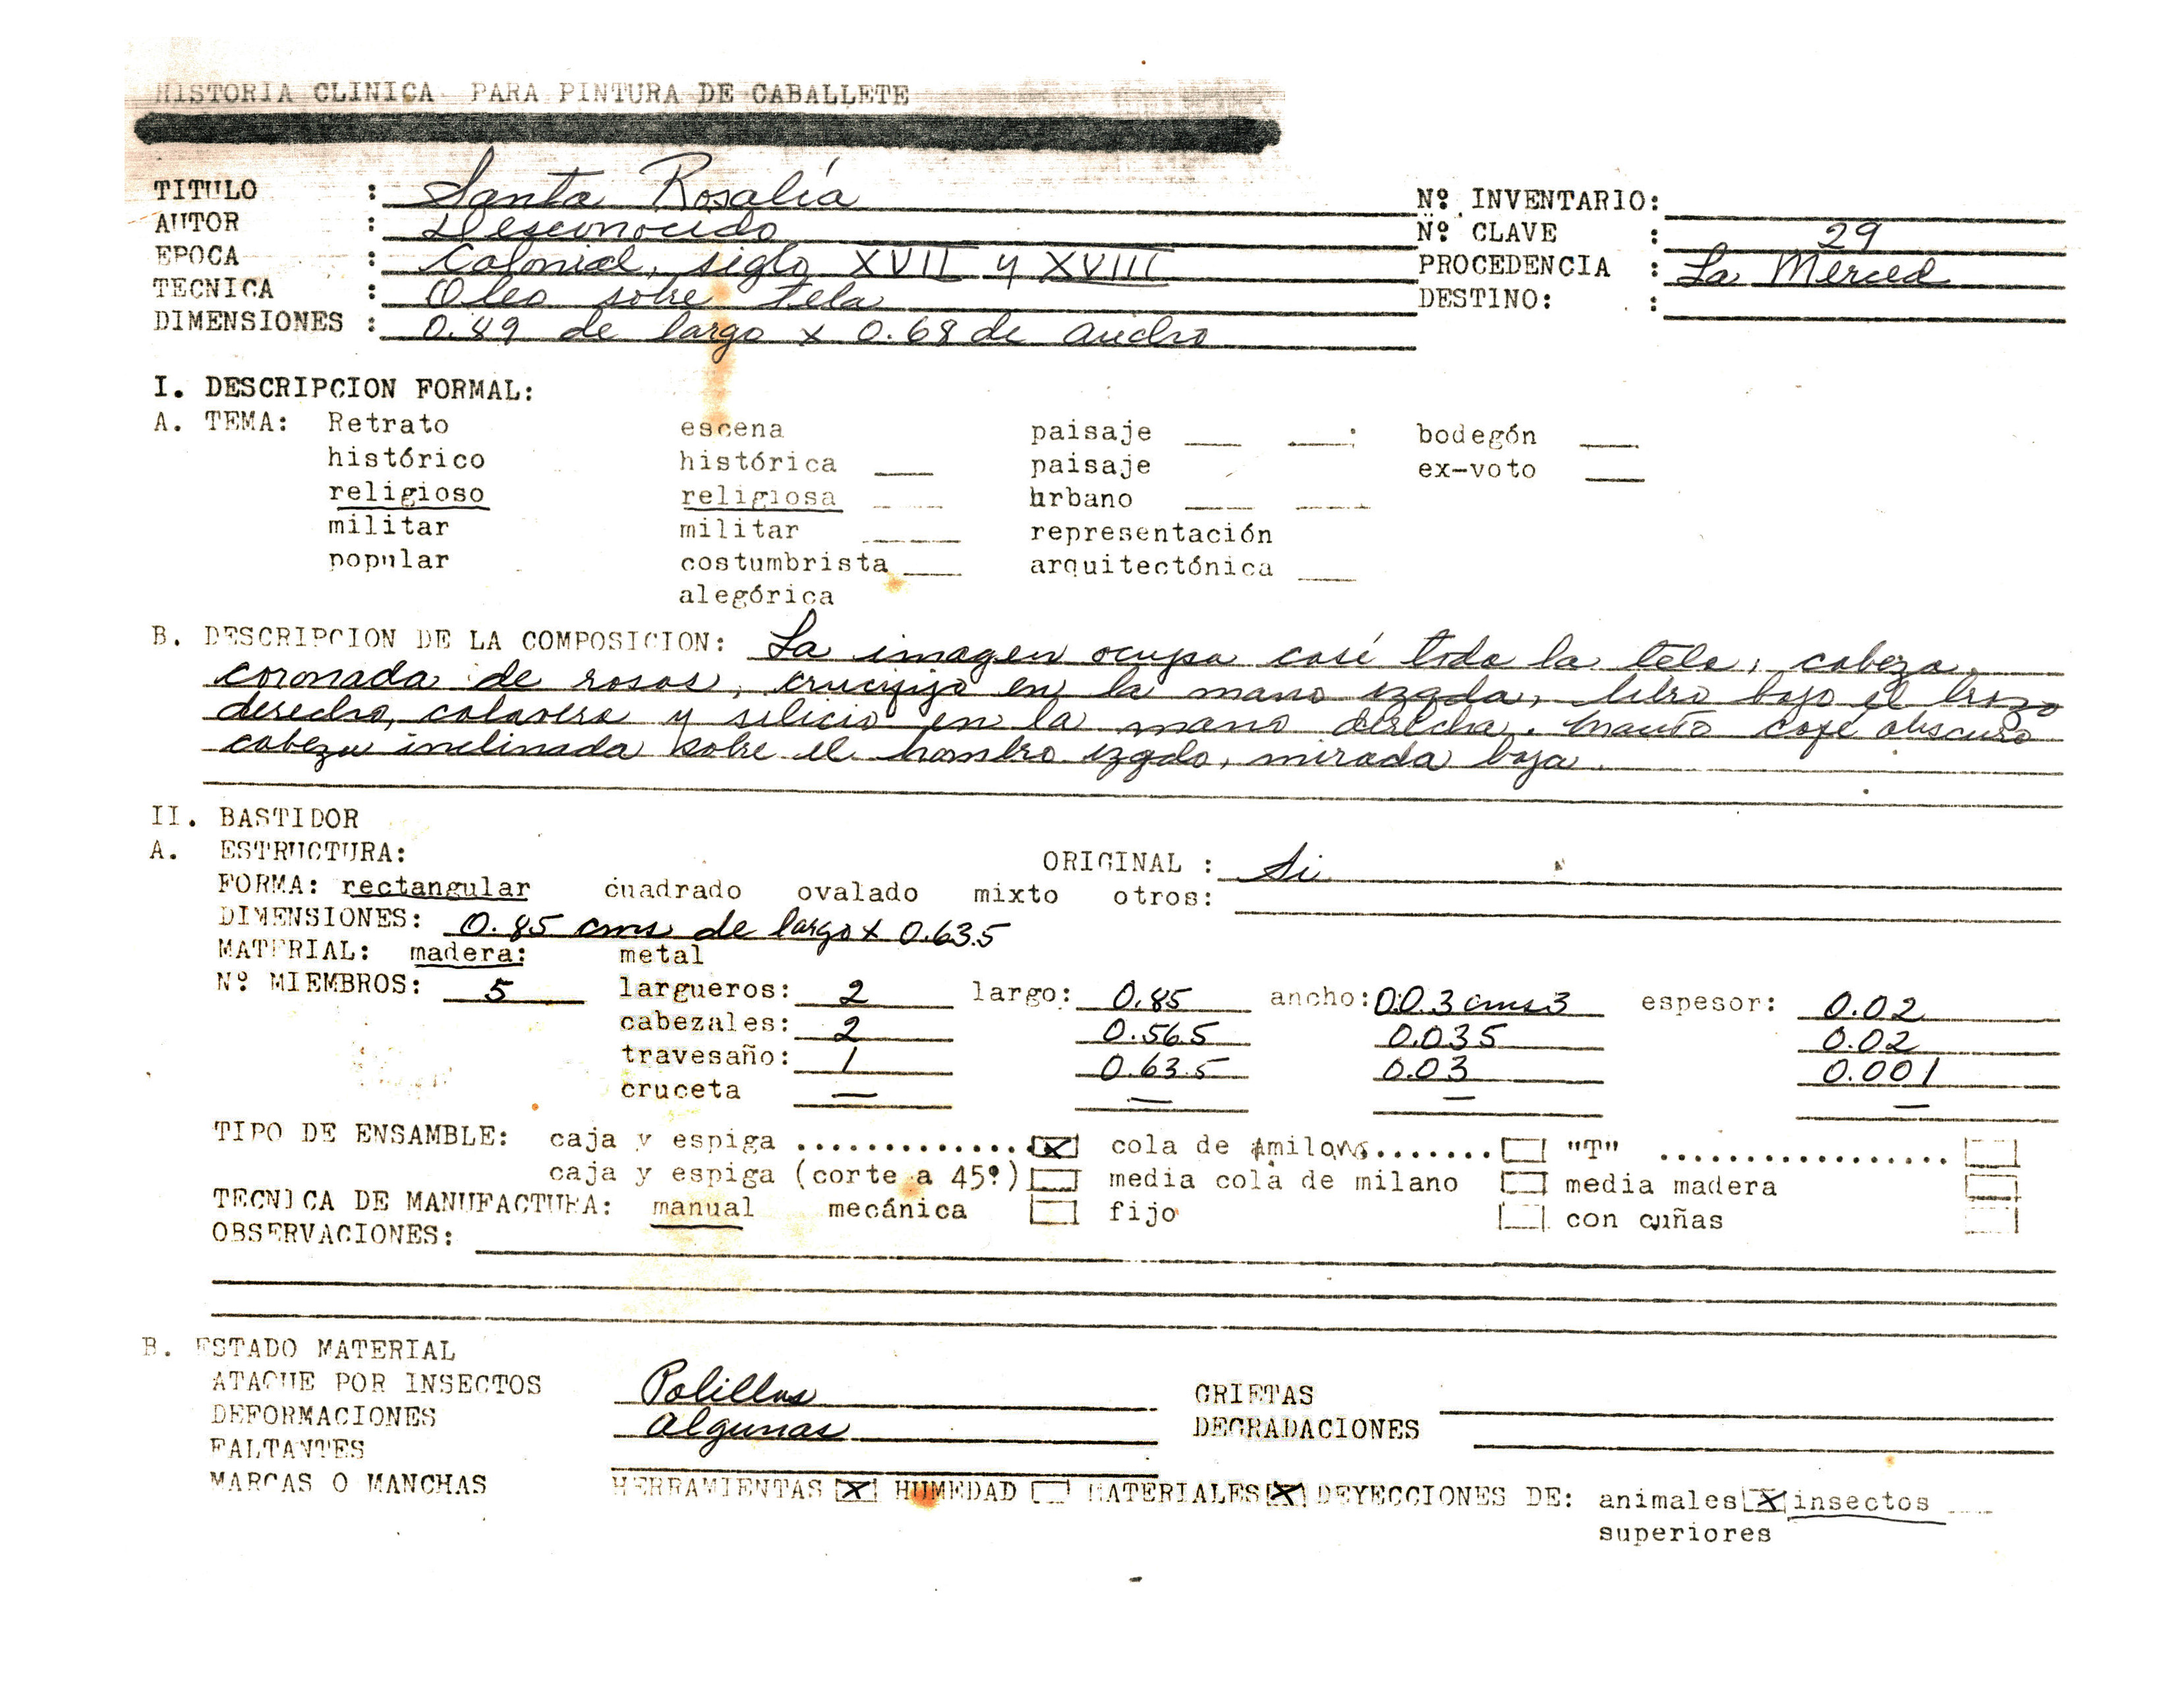 HISTORIA CLINICA PARA PINTURA DE CABALLETE
TITULO : Santa Rosalía Nº INVENTARIO:
AUTOR : Desconocido Nº CLAVE : 29
EPOCA : Colonial, siglo XVII y XVIII PROCEDENCIA : La Merced
TECNICA : Oleo sobre tela DESTINO: :
DIMENSIONES : 0.89 de largo x 0.68 de ancho
I. DESCRIPCION FORMAL:
A. TEMA: Retrato escena paisaje bodegón
histórico histórica paisaje ex-voto
religioso religiosa urbano
militar militar representación
popular costumbrista arquitectónica
alegórica
B. DESCRIPCION DE LA COMPOSICION: La imagen ocupa casi toda la tela, cabeza
coronada de rosas, crucifijo en la mano izqda, libro bajo el brazo
derecho, calavera y silicio en la mano derecha. Manto café obscuro
cabeza inclinada sobre el hombro izqdo, mirada baja.
II. BASTIDOR
A. ESTRUCTURA: ORIGINAL : Si
FORMA: rectangular cuadrado ovalado mixto otros:
DIMENSIONES: 0.85 cms de largo x 0.63.5
MATERIAL: madera: metal
Nº MIEMBROS: 5 largueros: 2 largo: 0.85 ancho: 0.0.3 cms3 espesor: 0.02
cabezales: 2 0.56.5 0.035 0.02
travesaño: 1 0.63.5 0.03 0.001
cruceta — — — —
TIPO DE ENSAMBLE: caja y espiga .............. X cola de milano ....... "T" .................
caja y espiga (corte a 45º) media cola de milano media madera
TECNICA DE MANUFACTURA: manual mecánica fijo con cuñas
OBSERVACIONES:
B. ESTADO MATERIAL
ATAQUE POR INSECTOS Polillas GRIETAS
DEFORMACIONES algunas DEGRADACIONES
FALTANTES
MARCAS O MANCHAS HERRAMIENTAS X HUMEDAD MATERIALES X DEYECCIONES DE: animales X insectos
superiores